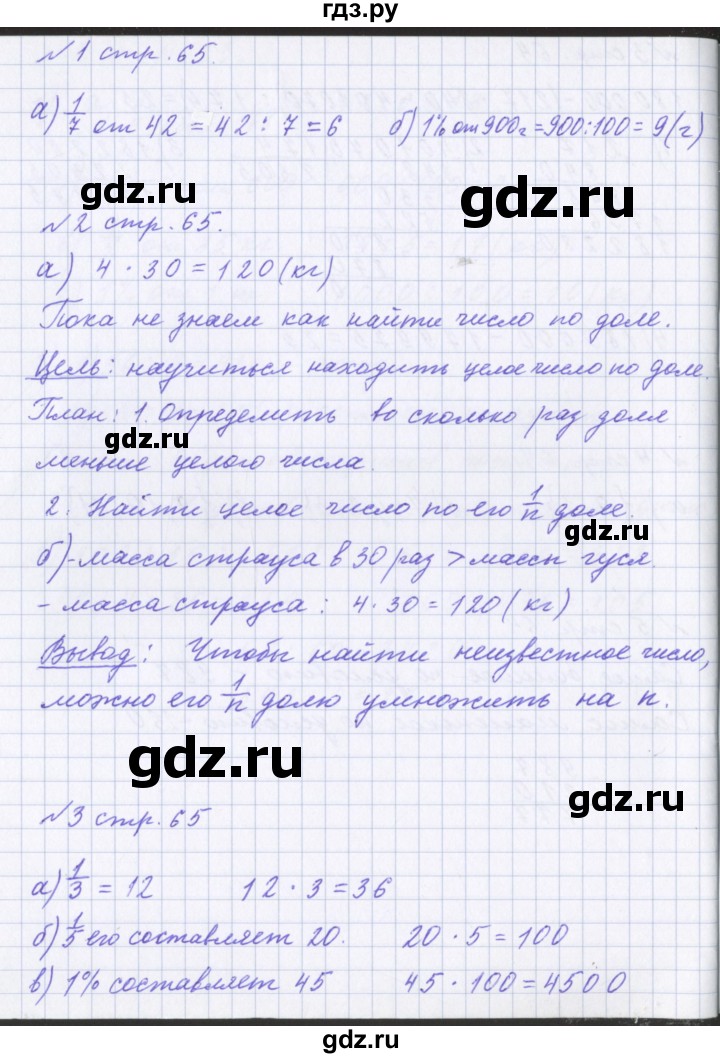 гдз.ру
№1 стр. 65.
а) 1/7 от 42 = 42 : 7 = 6 б) 1% от 900г = 900:100 = 9(г)
gdz.ru gdz.ru
№2 стр. 65.
а) 4 · 30 = 120 (кг)
Пока не знаем как найти число по доле.
Цель: научиться находить целое число по доле.
План: 1. Определить во сколько раз доля
gdz.ru
меньше целого числа.
2. Найти целое число по его 1/n доле.
gdz.ru
б) - масса страуса в 30 раз > массы гуся.
- масса страуса : 4 · 30 = 120 (кг)
Вывод: Чтобы найти неизвестное число,
можно его 1/n долю умножить на n.
gdz.ru
gdz.ru
№3 стр. 65
а) 1/3 = 12 12 · 3 = 36
б) 1/5 его составляет 20. 20 · 5 = 100
в) 1% составляет 45 45 · 100 = 4500
gdz.ru